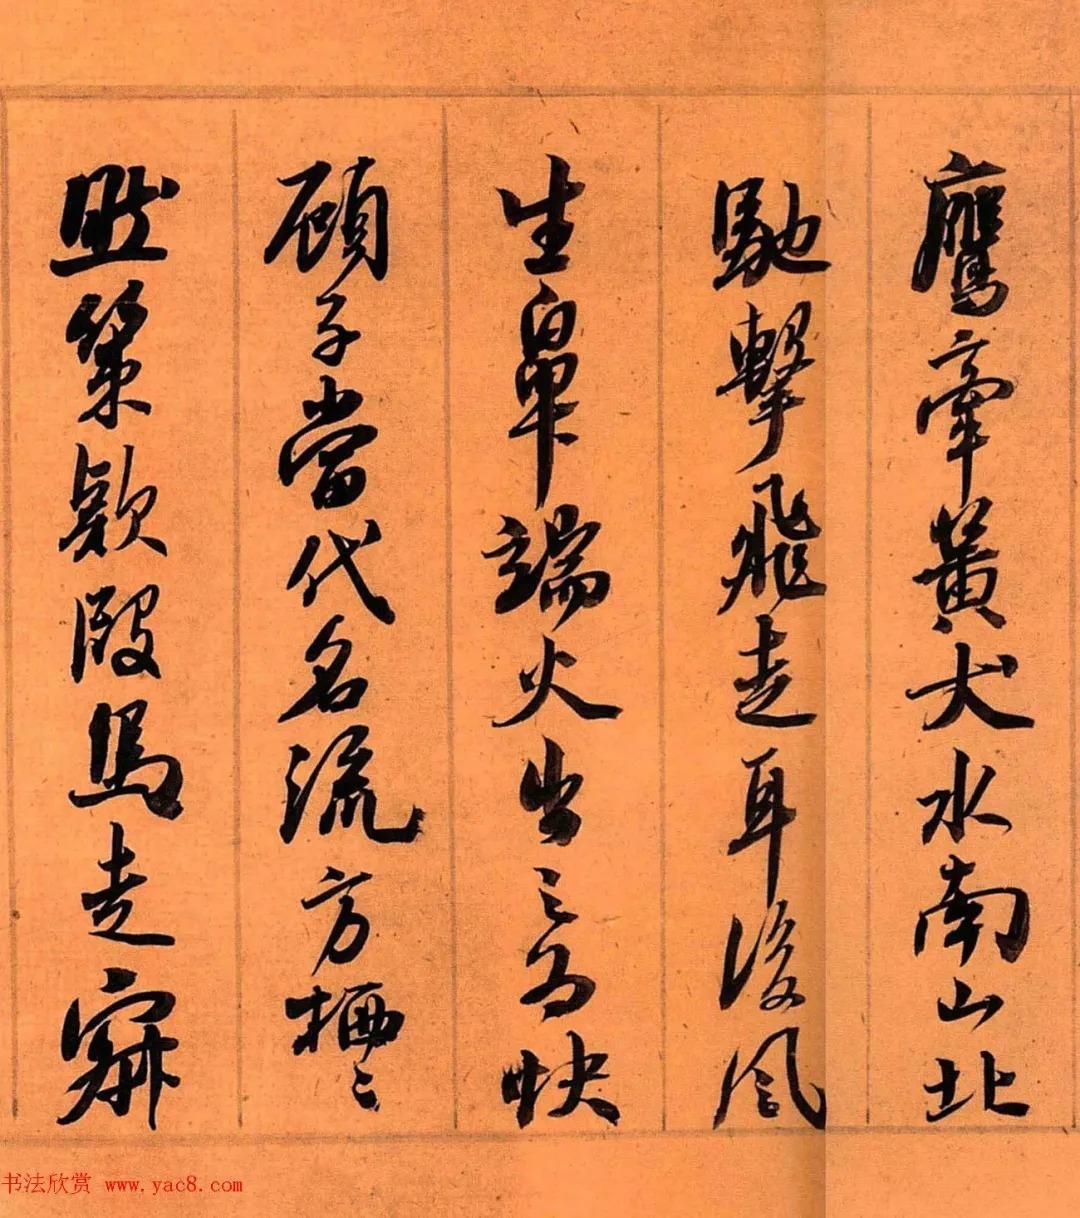 鷹牽黃犬水南山北
馳擊飛走耳後風
生鼻端火出之為快
顧子當代名流方栖〻
然策款段馬走
书法欣赏 www.yac8.com